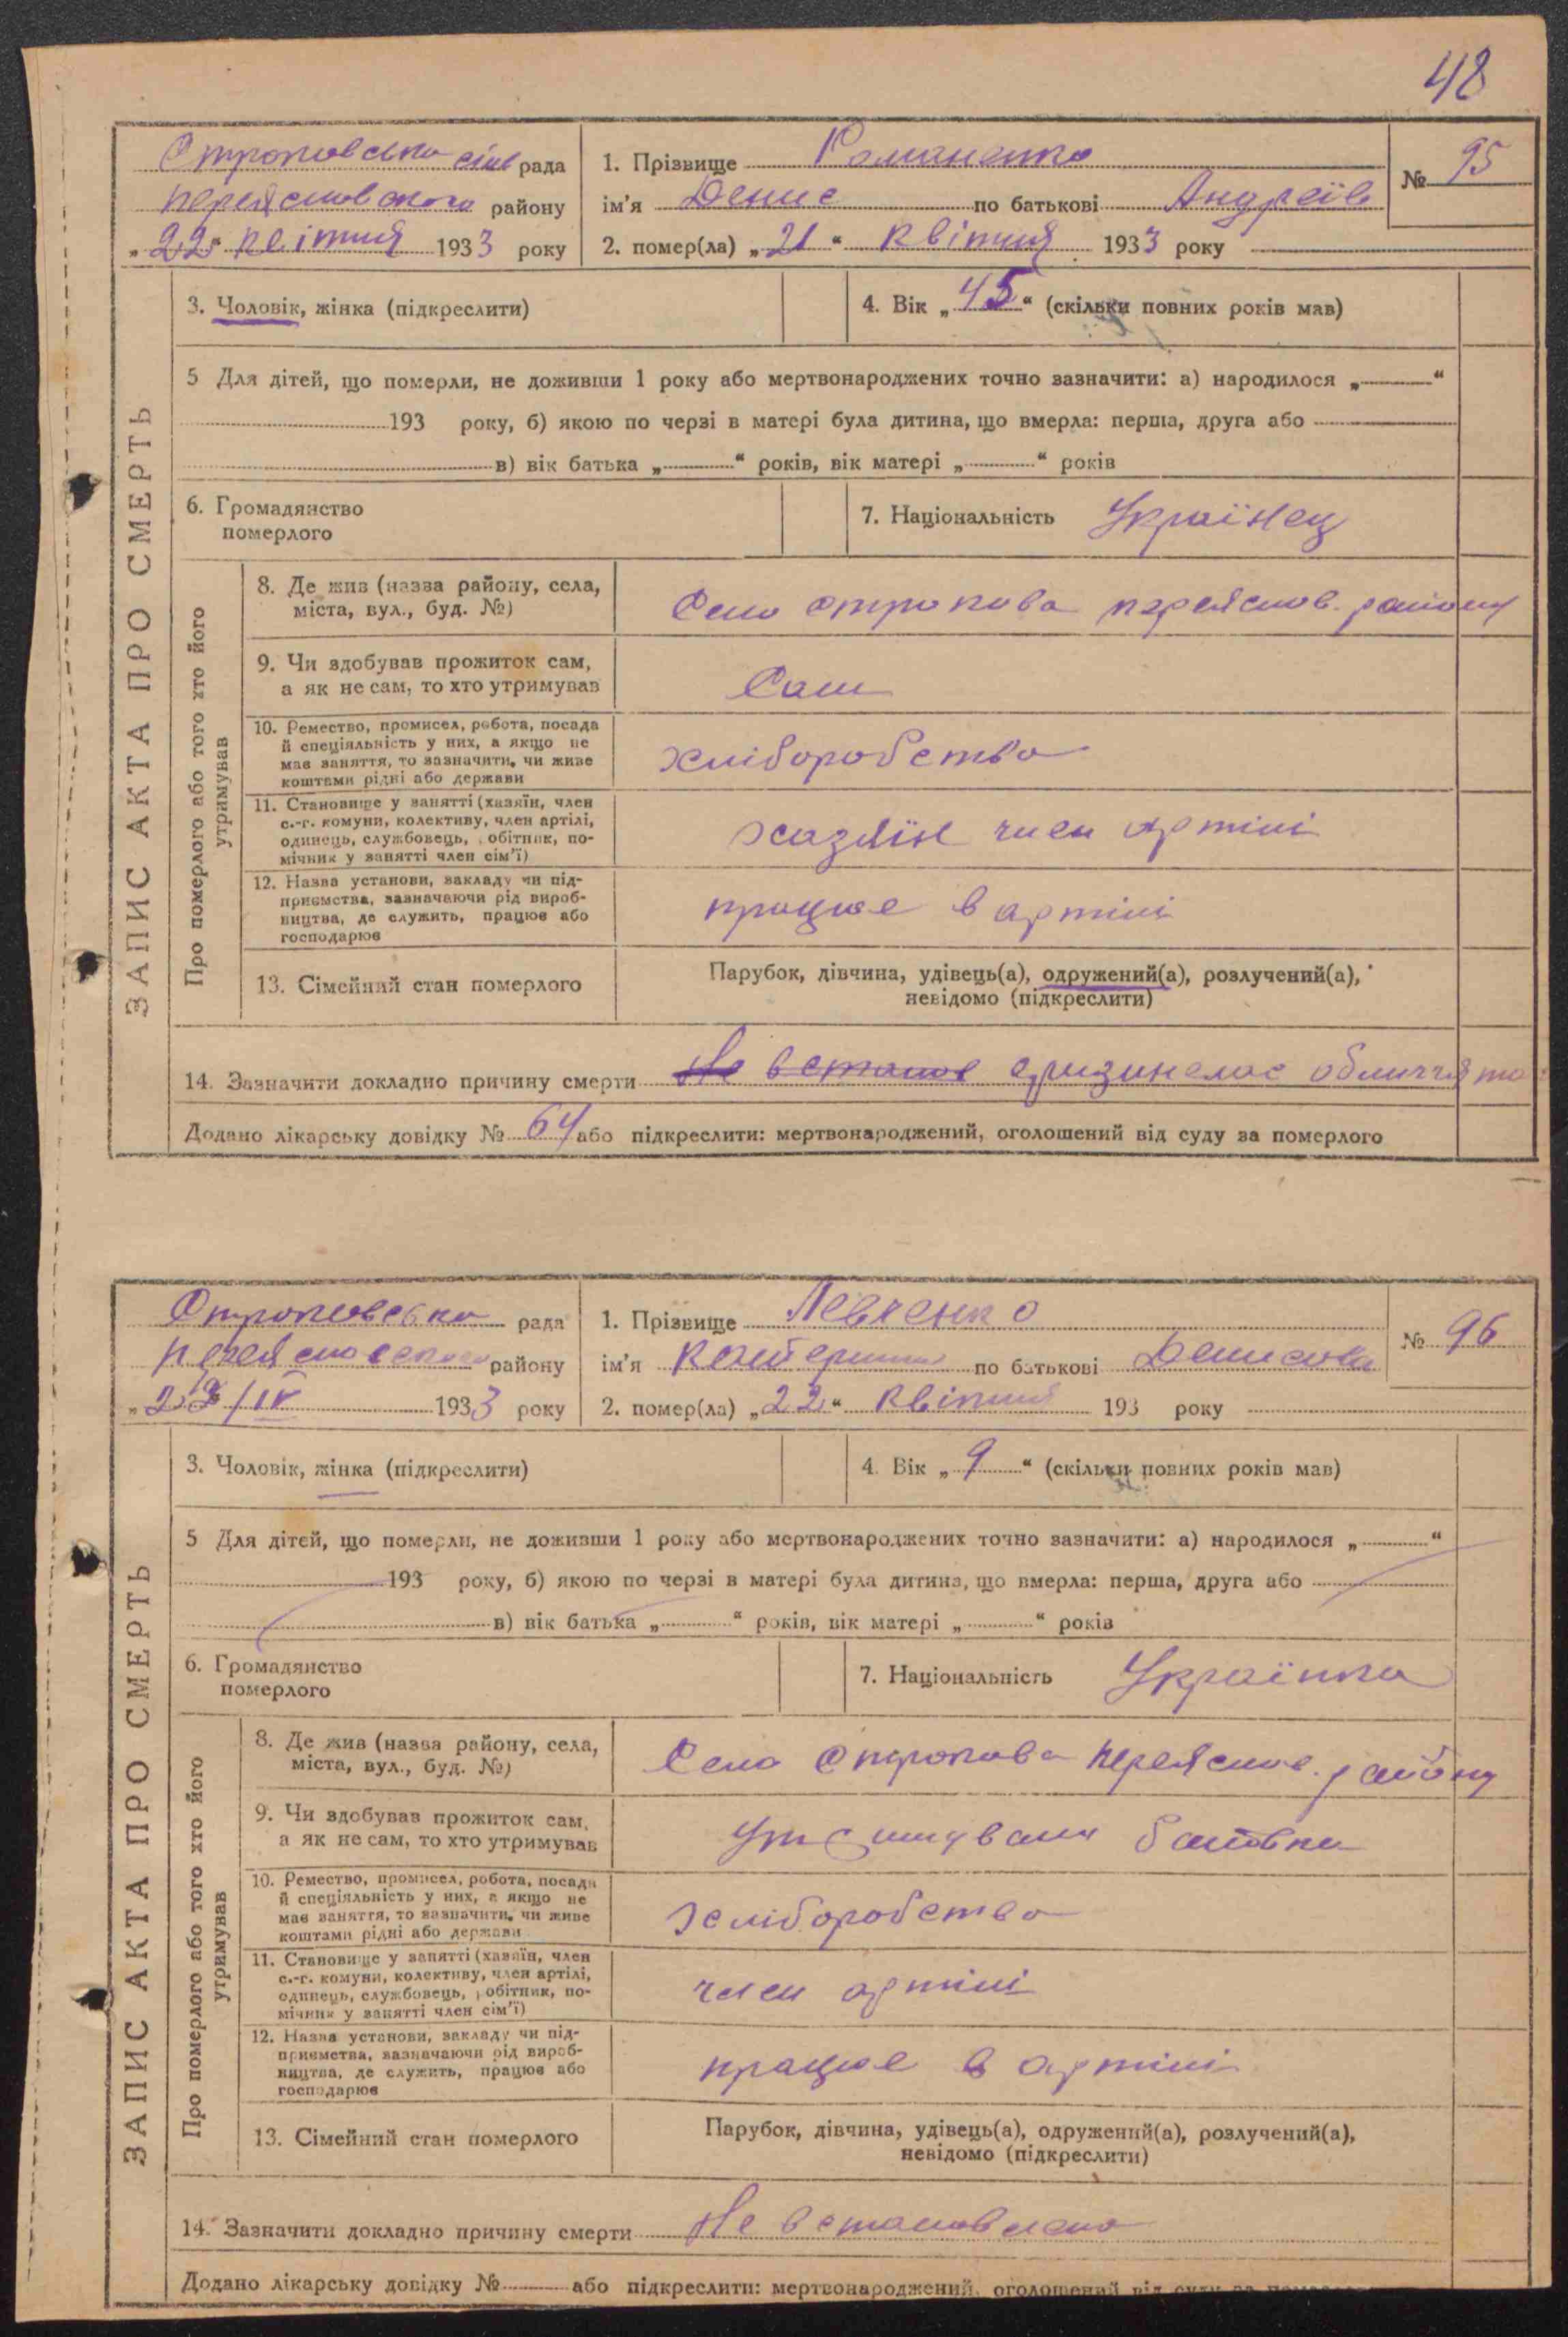 48
Строковська сіль рада
Переяславського району
"22" квітня 1933 року
1. Прізвище Романенко
ім'я Денис по батькові Андреїв
№ 95
2. помер(ла) „21“ квітня 1933 року
ЗАПИС АКТА ПРО СМЕРТЬ
3. Чоловік, жінка (підкреслити)
4. Вік „45“ (скільки повних років мав)
5 Для дітей, що померли, не доживши 1 року або мертвонароджених точно зазначити: а) народилося „ “
193 року, б) якою по черзі в матері була дитина, що вмерла: перша, друга або
в) вік батька „ “ років, вік матері „ “ років
6. Громадянство
померлого
7. Національність Українец
Про померлого або того хто його
утримував
8. Де жив (назва району, села,
міста, вул., буд. №)
Село Строкова переяслав. району
9. Чи здобував прожиток сам,
а як не сам, то хто утримував
Сам
10. Ремество, промисел, робота, посада
й спеціяльність у них, а якщо не
має заняття, то зазначити, чи живе
коштами рідні або держави
хліборобство
11. Становище у занятті (хазяїн, член
с.-г. комуни, колективу, член артілі,
одинець, службовець, робітник, по-
мічник у занятті член сім'ї)
хазяїн член артілі
12. Назва установи, закладу чи під-
приємства, зазначаючи рід вироб-
ництва, де служить, працює або
господарює
працює в артілі
13. Сімейний стан померлого
Парубок, дівчина, удівець(а), одружений(а), розлучений(а),
невідомо (підкреслити)
14. Зазначити докладно причину смерти Не встанов обличчя та
Додано лікарську довідку № 64 або підкреслити: мертвонароджений, оголошений від суду за померлого
Строковська рада
Переяславського району
" 22/IV 1933 року
1. Прізвище Левченко
ім'я Катерина по батькові Денисова
№ 96
2. помер(ла) „22“ квітня 193 року
ЗАПИС АКТА ПРО СМЕРТЬ
3. Чоловік, жінка (підкреслити)
4. Вік „9“ (скільки повних років мав)
5 Для дітей, що померли, не доживши 1 року або мертвонароджених точно зазначити: а) народилося „ “
193 року, б) якою по черзі в матері була дитина, що вмерла: перша, друга або
в) вік батька „ “ років, вік матері „ “ років
6. Громадянство
померлого
7. Національність Українка
Про померлого або того хто його
утримував
8. Де жив (назва району, села,
міста, вул., буд. №)
Село Строкова переяслав. району
9. Чи здобував прожиток сам,
а як не сам, то хто утримував
Утримували батьки
10. Ремество, промисел, робота, посада
й спеціяльність у них, а якщо не
має заняття, то зазначити, чи живе
коштами рідні або держави
хліборобство
11. Становище у занятті (хазяїн, член
с.-г. комуни, колективу, член артілі,
одинець, службовець, робітник, по-
мічник у занятті член сім'ї)
член артілі
12. Назва установи, закладу чи під-
приємства, зазначаючи рід вироб-
ництва, де служить, працює або
господарює
працює в артілі
13. Сімейний стан померлого
Парубок, дівчина, удівець(а), одружений(а), розлучений(а),
невідомо (підкреслити)
14. Зазначити докладно причину смерти Не встановлено
Додано лікарську довідку № або підкреслити: мертвонароджений, оголошений від суду за